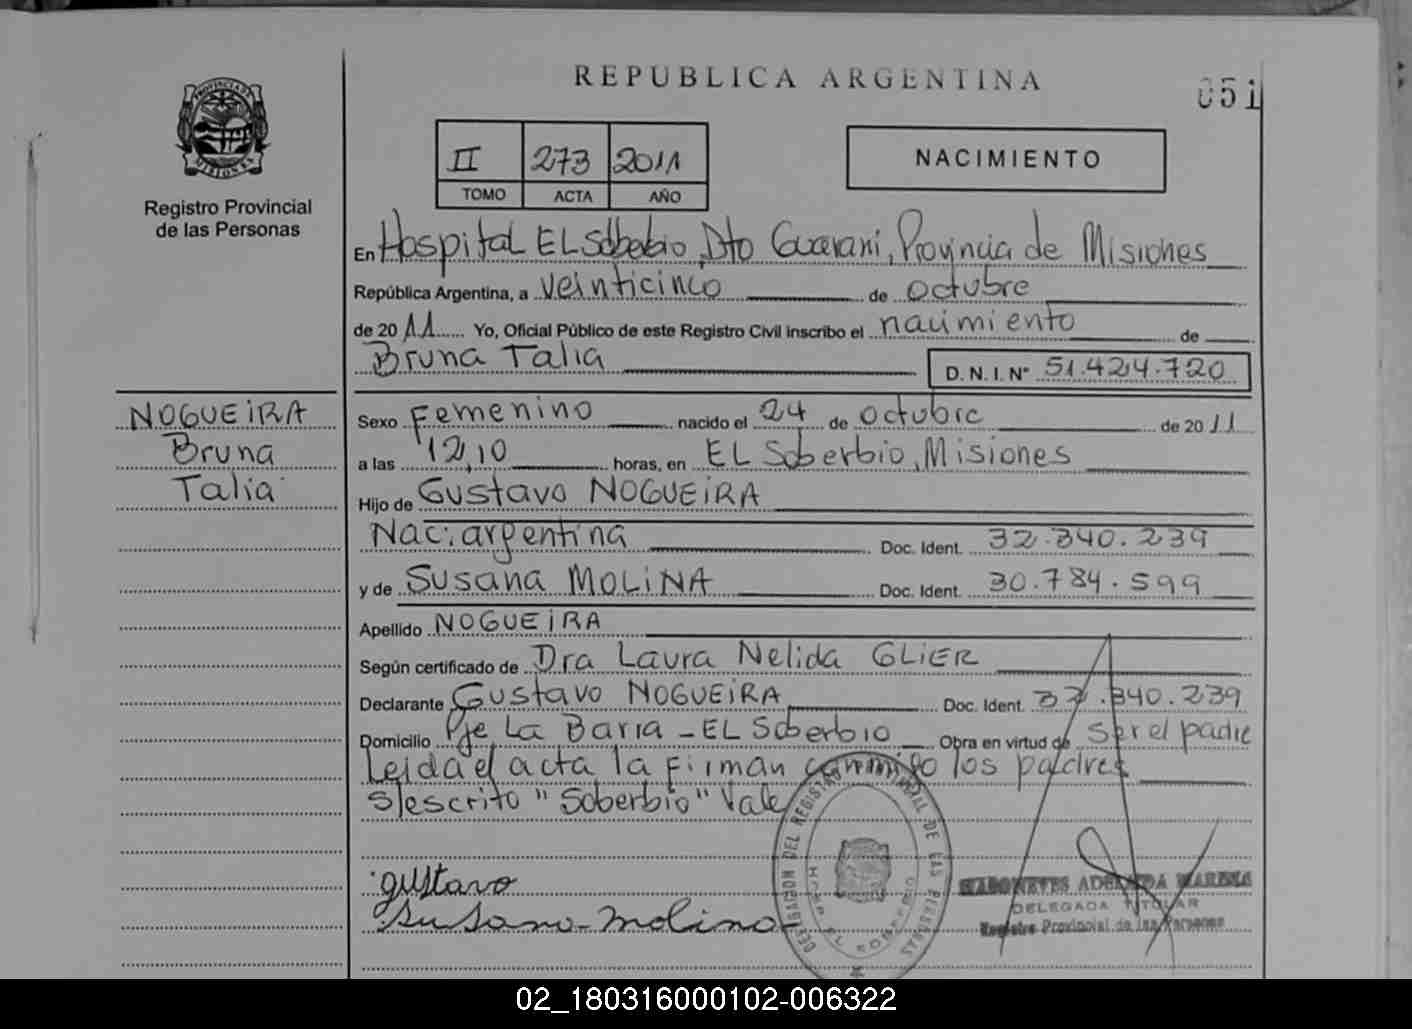 REPUBLICA ARGENTINA
051
PROVINCIA DE MISIONES
Registro Provincial
de las Personas
II 273 2011
TOMO ACTA AÑO
NACIMIENTO
En Hospital EL Soberbio, Dto Guarani, Provincia de Misiones
República Argentina, a veinticinco de octubre
de 2011 Yo, Oficial Público de este Registro Civil inscribo el nacimiento de
Bruna Talia D.N.I. N° 51.424.720
NOGUEIRA
Bruna
Talia
Sexo Femenino nacido el 24 de octubre de 2011
a las 12,10 horas, en EL Soberbio, Misiones
Hijo de Gustavo NOGUEIRA
Nac: argentina Doc. Ident. 32.340.239
y de Susana MOLINA Doc. Ident. 30.784.599
Apellido NOGUEIRA
Según certificado de Dra Laura Nelida GLIER
Declarante Gustavo NOGUEIRA Doc. Ident. 32.340.239
Domicilio Pje La Barra - EL Soberbio Obra en virtud de ser el padre
Leida el acta la firman conmigo los padres
s/escrito "Soberbio" Vale
gustavo
Susana molina
DELEGACION DEL REGISTRO PROVINCIAL DE LAS PERSONAS
HOSP. EL SOBERBIO
MARENA
DELEGADA TITULAR
Registro Provincial de las Personas
02_180316000102-006322